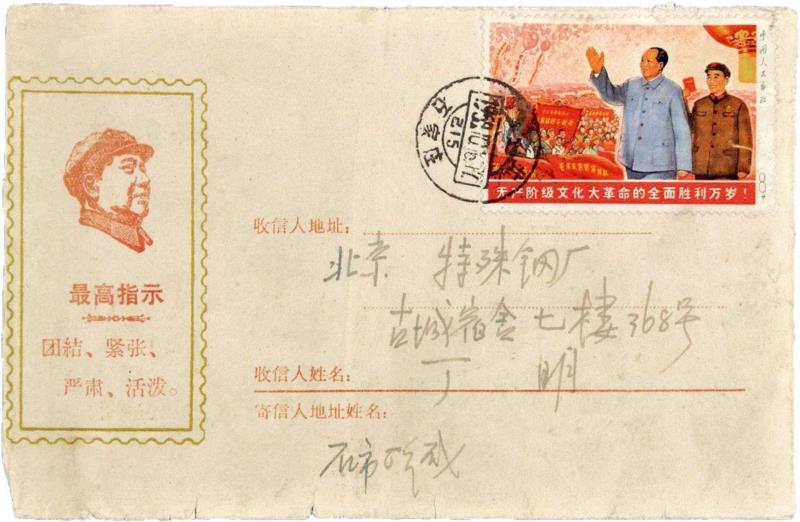 中国人民邮政
无产阶级文化大革命的全面胜利万岁！
8分
最高指示
团結、緊张、
严肃、活泼。
收信人地址：
北京 特殊钢厂
古城宿舍七楼368号
收信人姓名：
丁 明
寄信人地址姓名：
石市